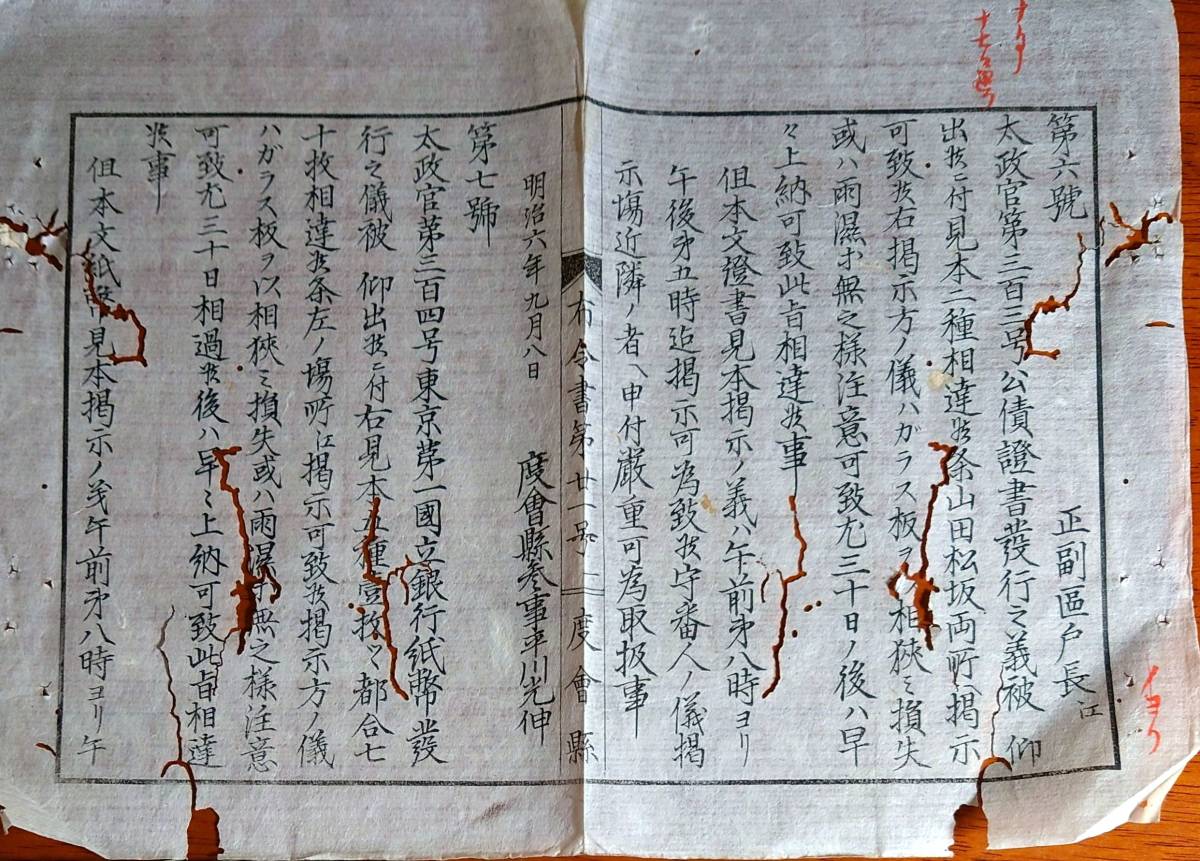 第六號
正副區戸長江
太政官第三百三号公債證書發行之義被 仰
出候ニ付見本二種相達候条山田松坂両所ヘ掲示
可致候右掲示方ノ儀ハガラス板ヲ 相狹ミ損失
或ハ雨濕等無之様注意可致尤三十日ノ後ハ早
々上納可致此旨相達候事
但本文證書見本掲示ノ義ハ午前第八時ヨリ
午後第五時迄掲示可為致候守番人ノ儀掲
示場近隣ノ者ヘ申付厳重可為取扱事
明治六年九月八日
度會縣参事平川光伸
布令書第廿一号 度會縣
第七號
太政官第三百四号東京第一國立銀行紙幣發
行之儀被 仰出候ニ付右見本五種壹枚ツヽ都合七
十枚相達候条左ノ場所江掲示可致候掲示方ノ儀
ハガラス板ヲ以相狹ミ損失或ハ雨濕等無之様注意
可致尤三十日相過候後ハ早々上納可致此旨相達
候事
但本文紙幣見本掲示ノ義午前第八時ヨリ午